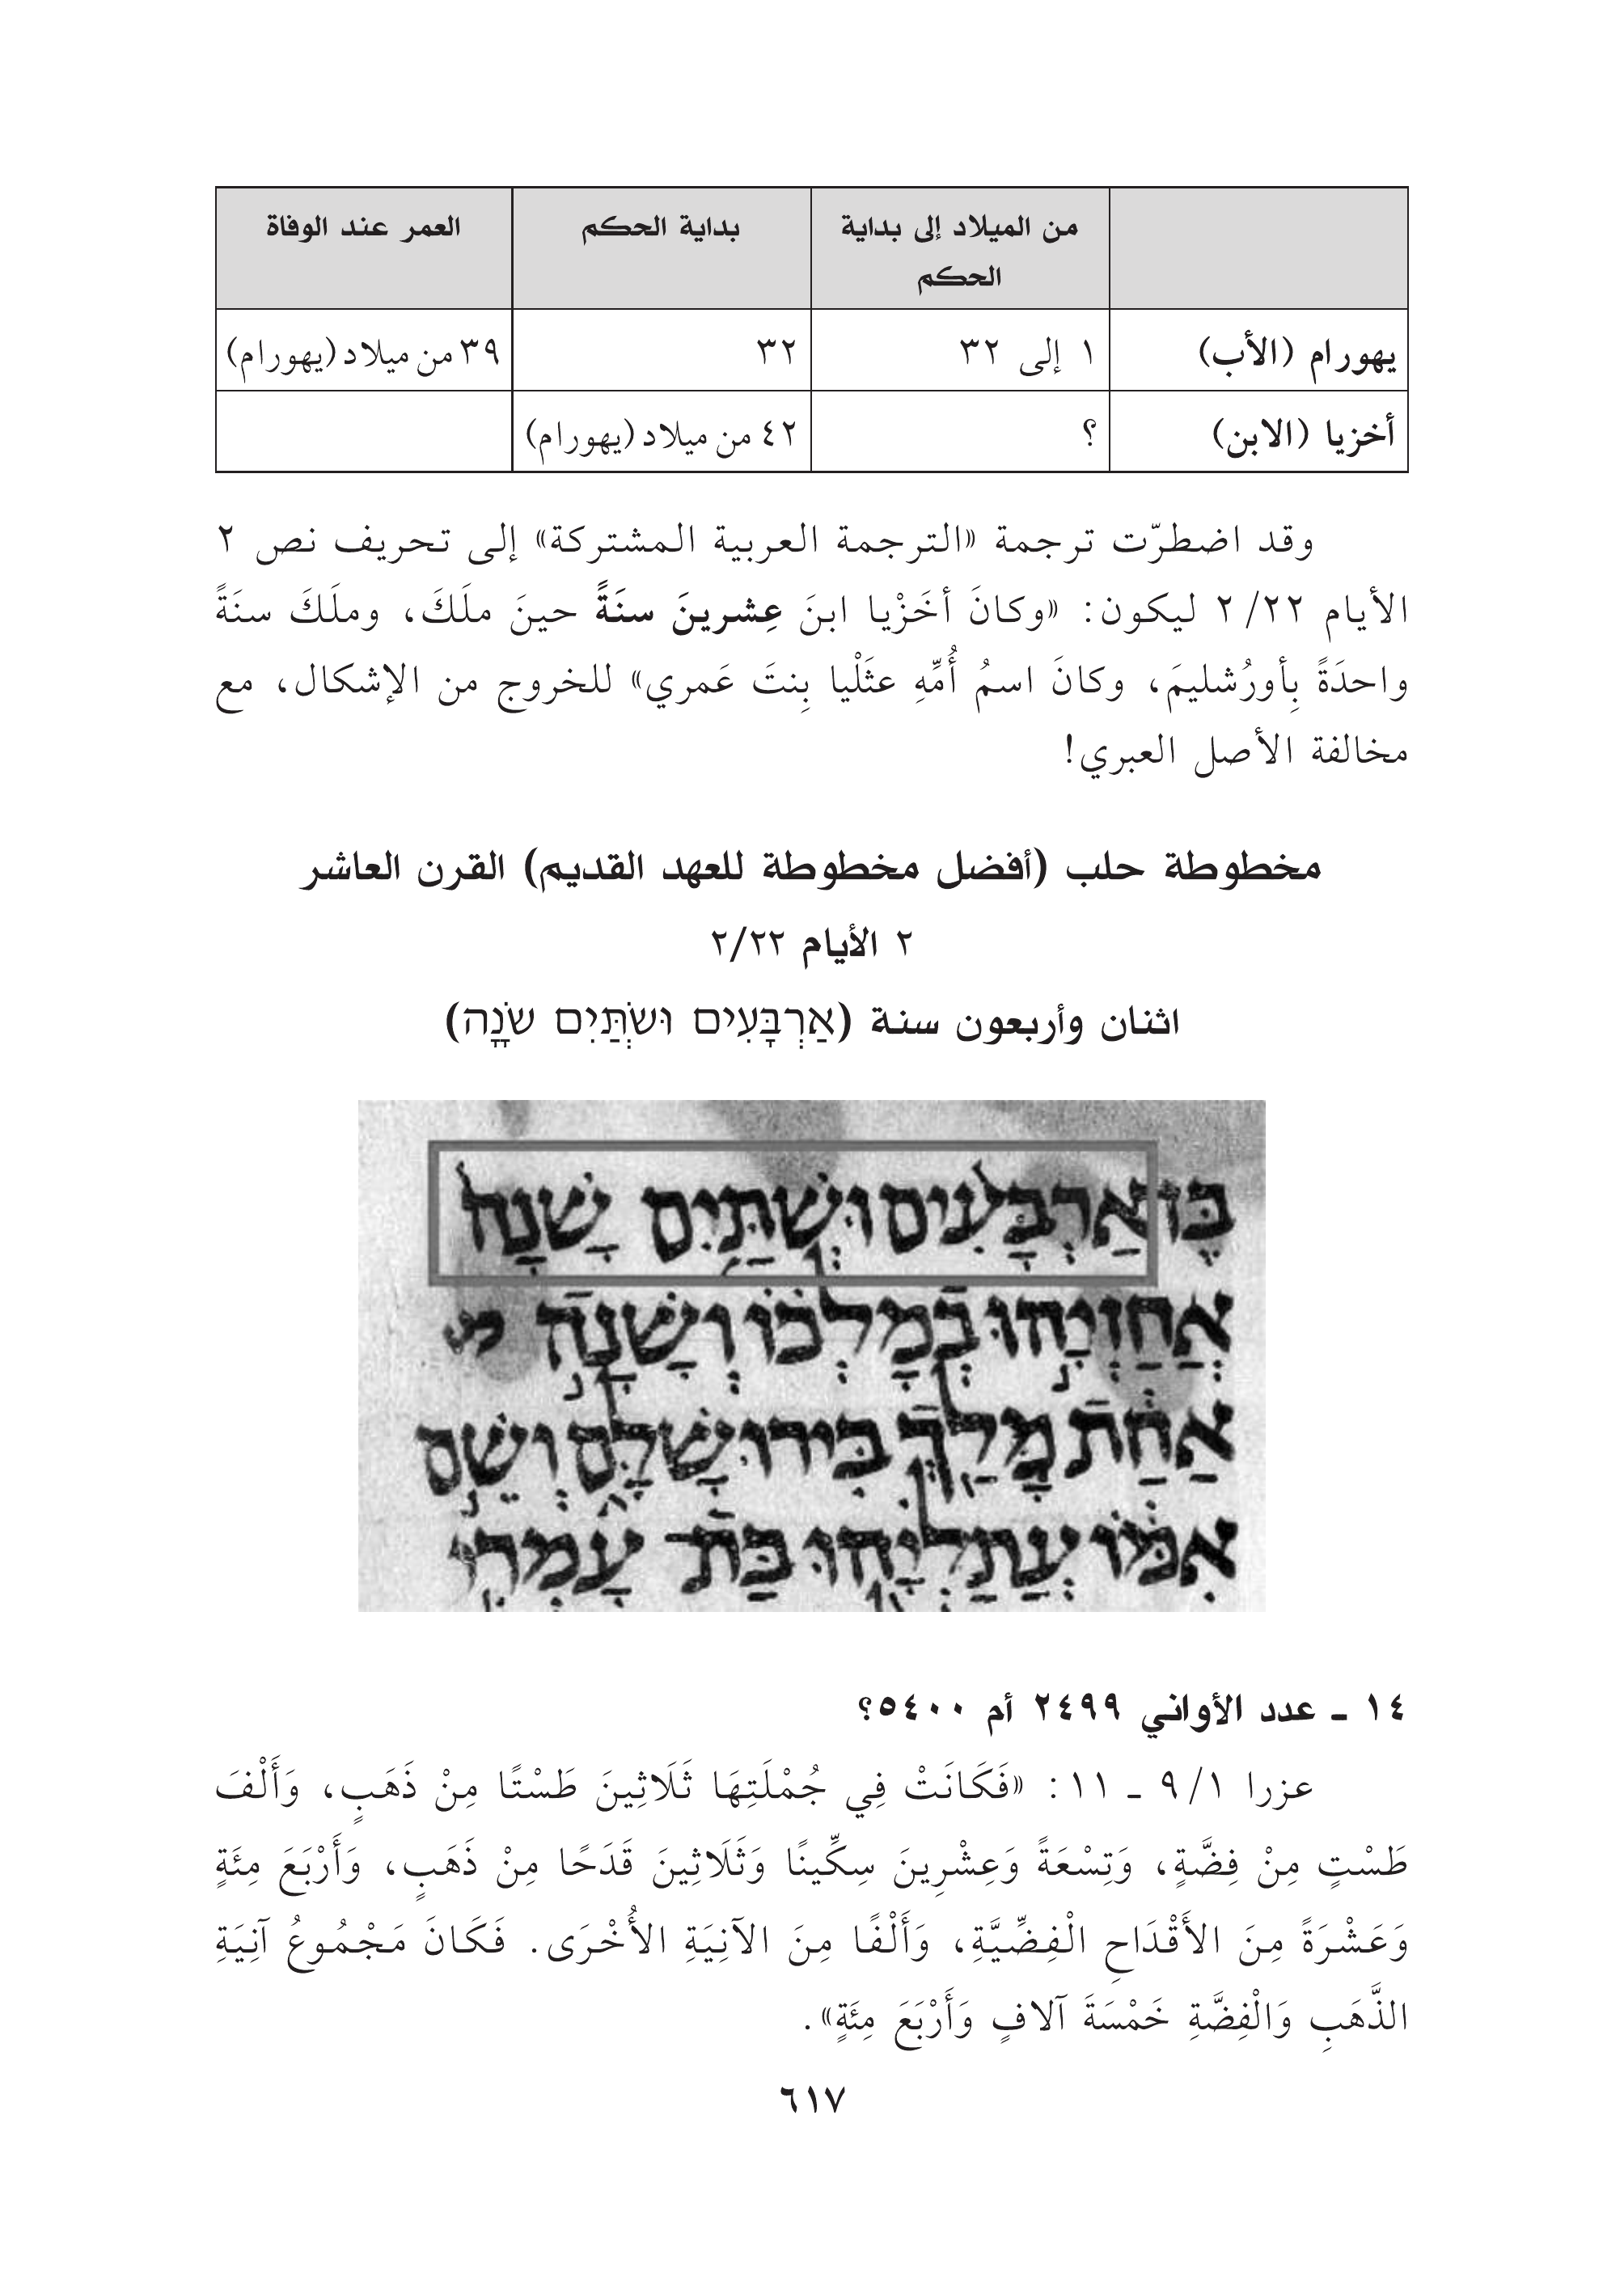 من الميلاد إلى بداية الحكم بداية الحكم العمر عند الوفاة
يهورام (الأب) ١ إلى ٣٢ ٣٢ ٣٩ من ميلاد (يهورام)
أخزيا (الابن) ؟ ٤٢ من ميلاد (يهورام)
وقد اضطرّت ترجمة «الترجمة العربية المشتركة» إلى تحريف نص ٢
الأيام ٢/٢٢ ليكون: «وكانَ أخَزْيا ابنَ عِشرينَ سنَةً حينَ ملَكَ، وملَكَ سنَةً
واحدَةً بِأورُشليمَ، وكانَ اسمُ أُمِّهِ عثَلْيا بِنتَ عَمري» للخروج من الإشكال، مع
مخالفة الأصل العبري!
مخطوطة حلب (أفضل مخطوطة للعهد القديم) القرن العاشر
٢ الأيام ٢/٢٢
اثنان وأربعون سنة (אַרְבָּעִים וּשְׁתַּיִם שָׁנָה)
בֶּן אַרְבָּעִים וּשְׁתַּיִם שָׁנָה
אֲחַזְיָהוּ בְמָלְכוֹ וְשָׁנָה
אַחַת מָלַךְ בִּירוּשָׁלָםִ וְשֵׁם
אִמּוֹ עֲתַלְיָהוּ בַּת עָמְרִי
١٤ ـ عدد الأواني ٢٤٩٩ أم ٥٤٠٠؟
عزرا ٩/١ ـ ١١: «فَكَانَتْ فِي جُمْلَتِهَا ثَلَاثِينَ طَسْتًا مِنْ ذَهَبٍ، وَأَلْفَ
طَسْتٍ مِنْ فِضَّةٍ، وَتِسْعَةً وَعِشْرِينَ سِكِّينًا وَثَلَاثِينَ قَدَحًا مِنْ ذَهَبٍ، وَأَرْبَعَ مِئَةٍ
وَعَشْرَةً مِنَ الأَقْدَاحِ الْفِضِّيَّةِ، وَأَلْفًا مِنَ الآنِيَةِ الأُخْرَى. فَكَانَ مَجْمُوعُ آنِيَةِ
الذَّهَبِ وَالْفِضَّةِ خَمْسَةَ آلافٍ وَأَرْبَعَ مِئَةٍ».
٦١٧